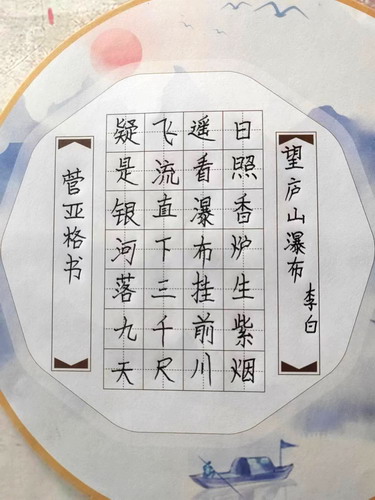 望庐山瀑布
李白
日照香炉生紫烟
遥看瀑布挂前川
飞流直下三千尺
疑是银河落九天
菅亚格书